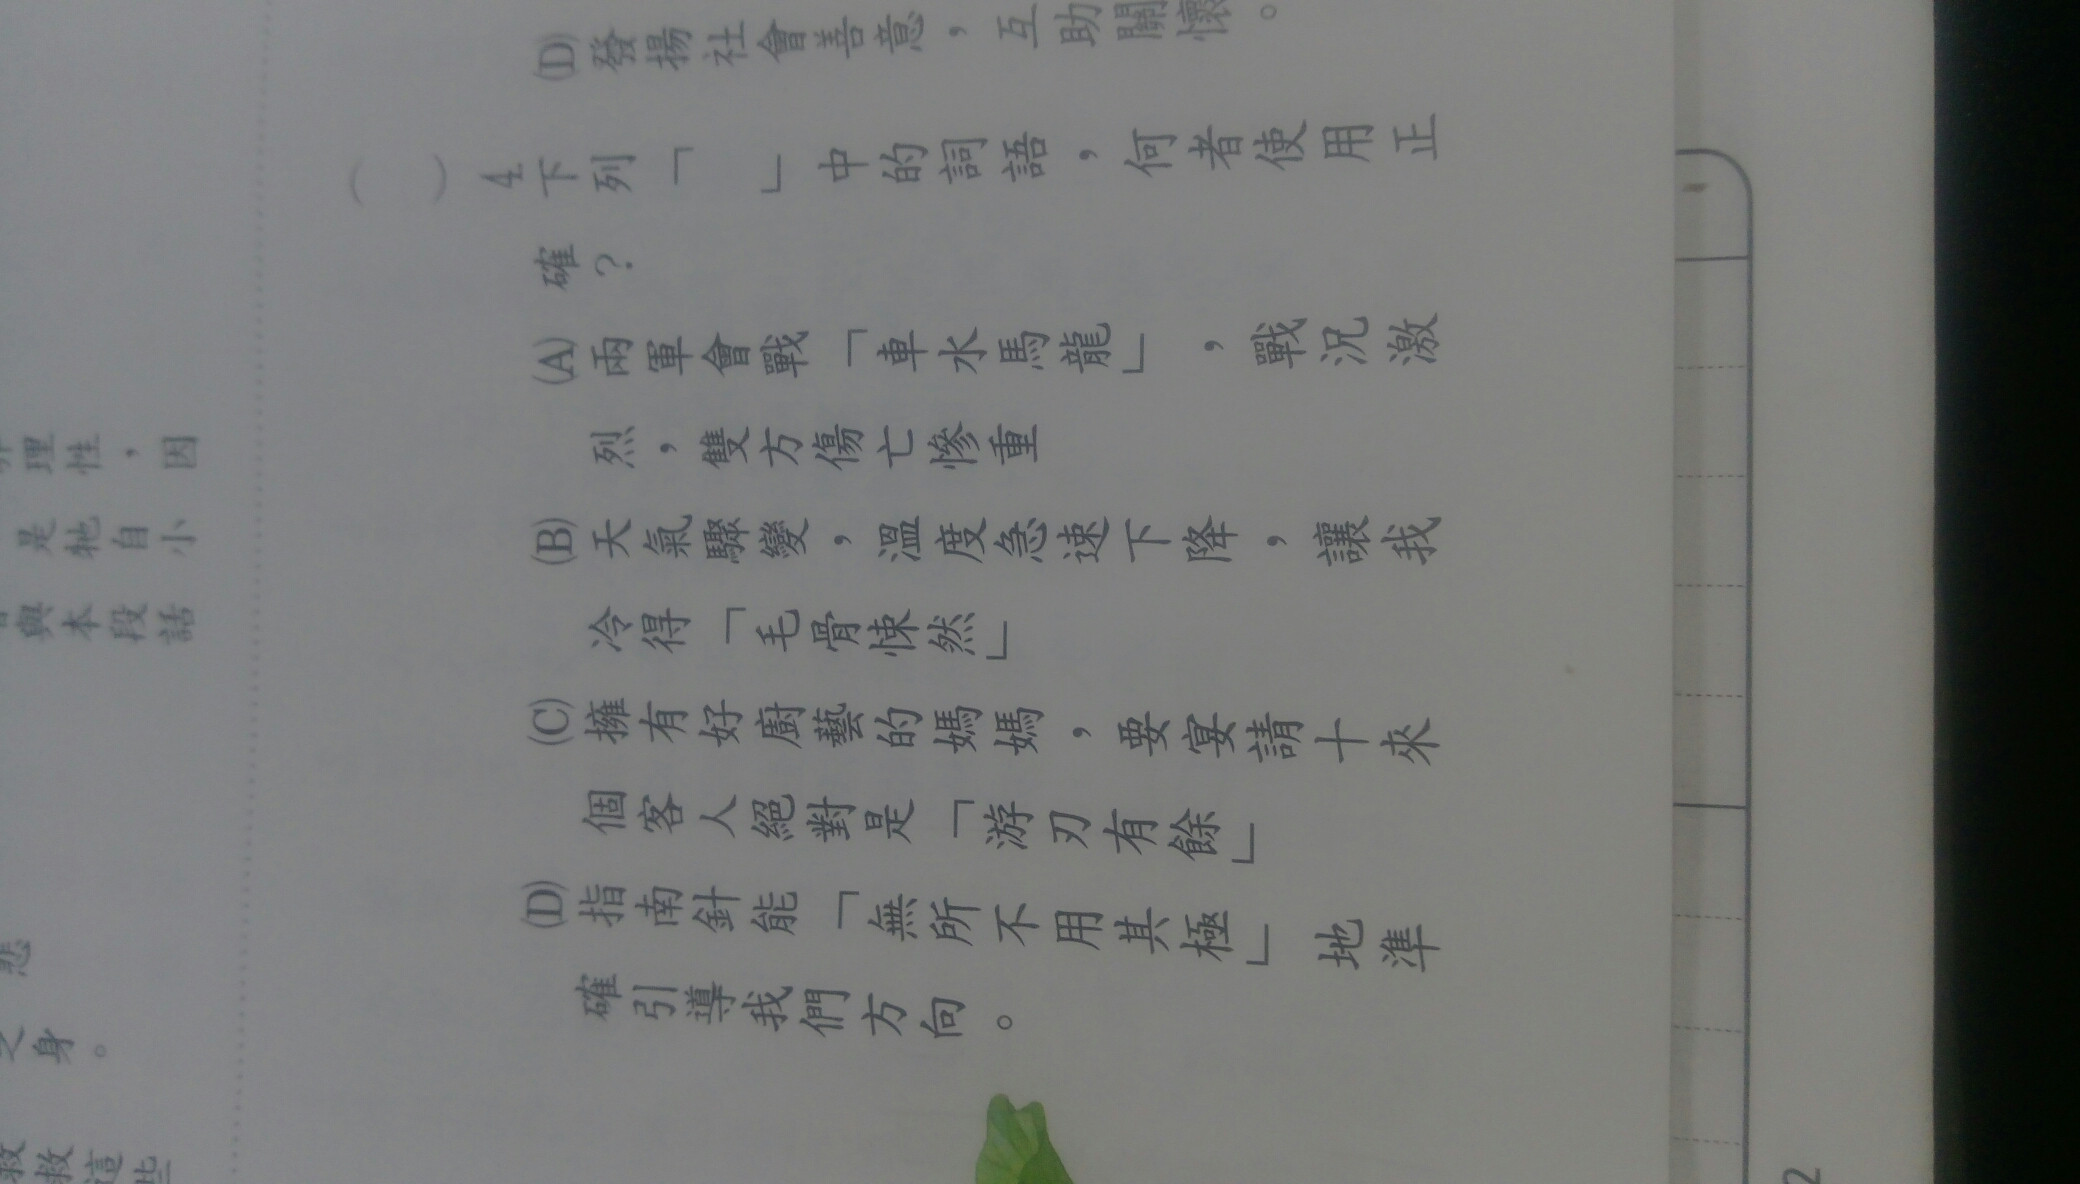 (D)發揚社會善意，互助關懷。
（　）4.下列「　」中的詞語，何者使用正
確？
(A)兩軍會戰「車水馬龍」，戰況激
烈，雙方傷亡慘重
(B)天氣驟變，溫度急速下降，讓我
冷得「毛骨悚然」
(C)擁有好廚藝的媽媽，要宴請十來
個客人絕對是「游刃有餘」
(D)指南針能「無所不用其極」地準
確引導我們方向。
理性，因
是牠自小
與本段話
悲
之身。
救這些
2